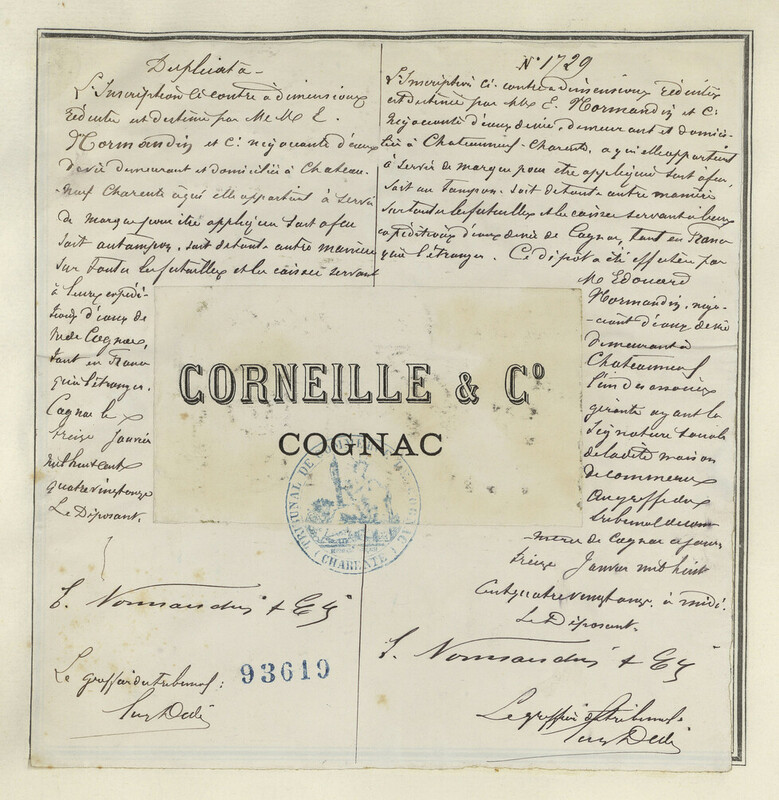 Duplicata
L'Inscription ci contre à dimensions
réduites est destinée par M. M. E.
Normandin et Cie négociants d'eaux
de vie demeurant et domiciliés à Chateau-
neuf Charente à qui elle appartient à servir
de marque pour être appliquée soit à feu
soit au tampon, soit de toute autre manière
sur toutes les futailles et les caisses servant
à leurs expédi-
tions d'eaux de
vie de Cognac,
tant en France
qu'à l'étranger.
Cognac le
treize Janvier
mil huit cent
quatre vingt onze
Le Déposant.
E. Normandin & Cie
Le greffier du tribunal:
93619
N° 1729
L'Inscription ci-contre à dimensions réduites
est destinée par MM. E. Normandin et Cie
négociants d'eaux de vie, demeurant et domici-
liés à Chateauneuf-Charente, à qui elle appartient
à servir de marque pour être appliquée soit à feu,
soit au tampon, soit de toute autre manière
sur toutes les futailles et les caisses servant à leurs
expéditions d'eaux de vie de Cognac, tant en France
qu'à l'étranger. Ce dépôt a été effectué par
M. Edouard
Normandin, négo-
-ciant d'eaux de vie
demeurant à
Chateauneuf
l'un des associés
gérants ayant la
signature sociale
de la dite maison
de commerce
au greffe du
tribunal de com-
merce de Cognac ce jour
treize Janvier mil huit
cent quatre vingt onze à midi.
Le Déposant.
E. Normandin & Cie
Le greffier du tribunal
CORNEILLE & Cº
COGNAC
TRIBUNAL DE COMMERCE COGNAC
(CHARENTE)